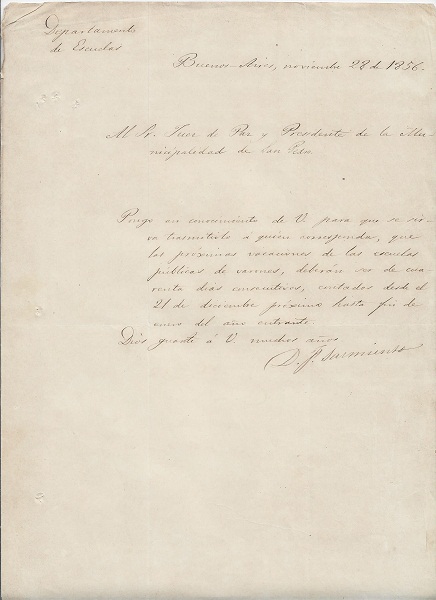 Departamento
de Escuelas
Buenos-Aires, noviembre 28 de 1856.
Al Sr. Juez de Paz y Presidente de la Mu-
nicipalidad de San Pedro.
Pongo en conocimiento de V. para que se sir-
va trasmitirlo á quien corresponda, que
las próximas vacaciones de las escuelas
públicas de varones, deberán ser de cua
renta dias consecutivos, contados desde el
21 de diciembre próximo hasta fin de
enero del año entrante.
Dios guarde á V. muchos años
D. F. Sarmiento